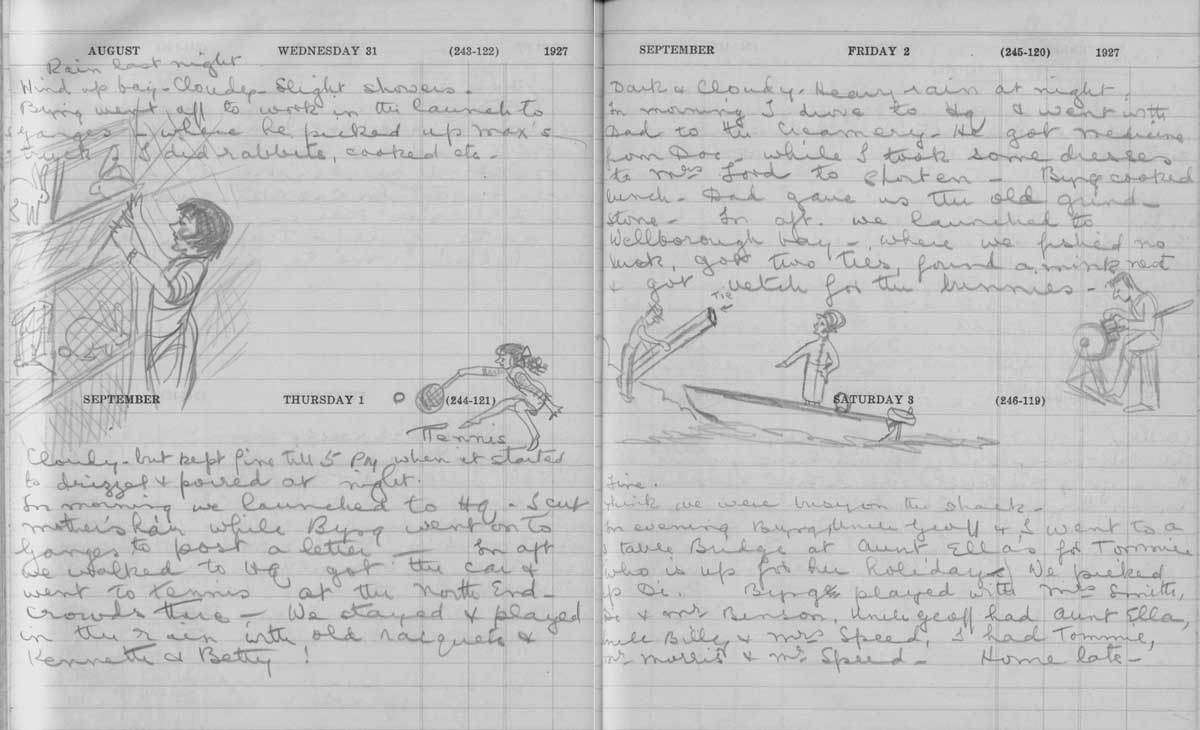 AUGUST WEDNESDAY 31 (243-122) 1927
Rain last night
Wind up bay - Cloudy - Slight showers.
Byng went off to work in the launch to
Ganges - where he picked up Max's
truck - I did rabbits, cooked etc -
SEPTEMBER THURSDAY 1 (244-121)
Tennis
Cloudy - but kept fine till 5 PM when it started
to drizzel & poired at night.
In morning we launched to Hq - I cut
mother's hair while Byng went on to
Ganges to post a letter - In aft
we walked to Hq got the car &
went to tennis at the North End -
Crowds there - We stayed & played
in the rain with old racquets &
Kenneth & Betty!
SEPTEMBER FRIDAY 2 (245-120) 1927
Dark & Cloudy. Heavy rain at night.
In morning I drove to Hq & went with
Dad to the Creamery - He got medicine
from Doc - while I took some dresses
to Mrs Ford to shorten - Byng cooked
lunch - Dad gave us the old grind-
stone - In aft. we launched to
Wellborough bay - where we fished no
luck, got two ties, found a mink nest
& got vetch for the bunnies -
Tie
SATURDAY 3 (246-119)
Fine.
think we were busy on the shack -
In evening Byng, Uncle Geoff & I went to a
table Bridge at Aunt Ella's for Tommie
who is up for her holidays. We picked
up Di. Byng played with Mrs Smith,
& Mr Benson, Uncle Geoff had Aunt Ella,
Uncle Billy & Mrs Speed, I had Tommie,
Mr Morris & Mr Speed - Home late -